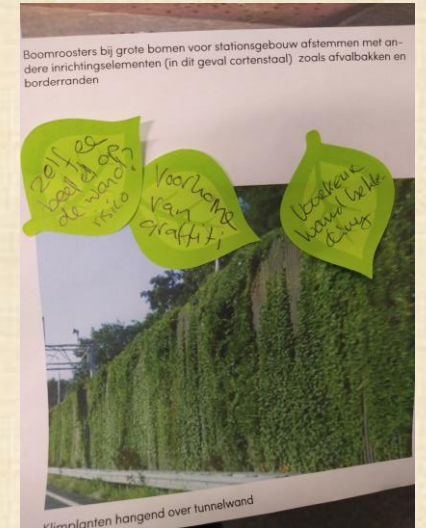 Boomroosters bij grote bomen voor stationsgebouw afstemmen met an-
dere inrichtingselementen (in dit geval cortenstaal) zoals afvalbakken en
borderranden
zelf ee
beeld op
de wand?
risico
Voorkome
van
graffiti
Voorkeur
wand bekle-
ding
Klimplanten hangend over tunnelwand